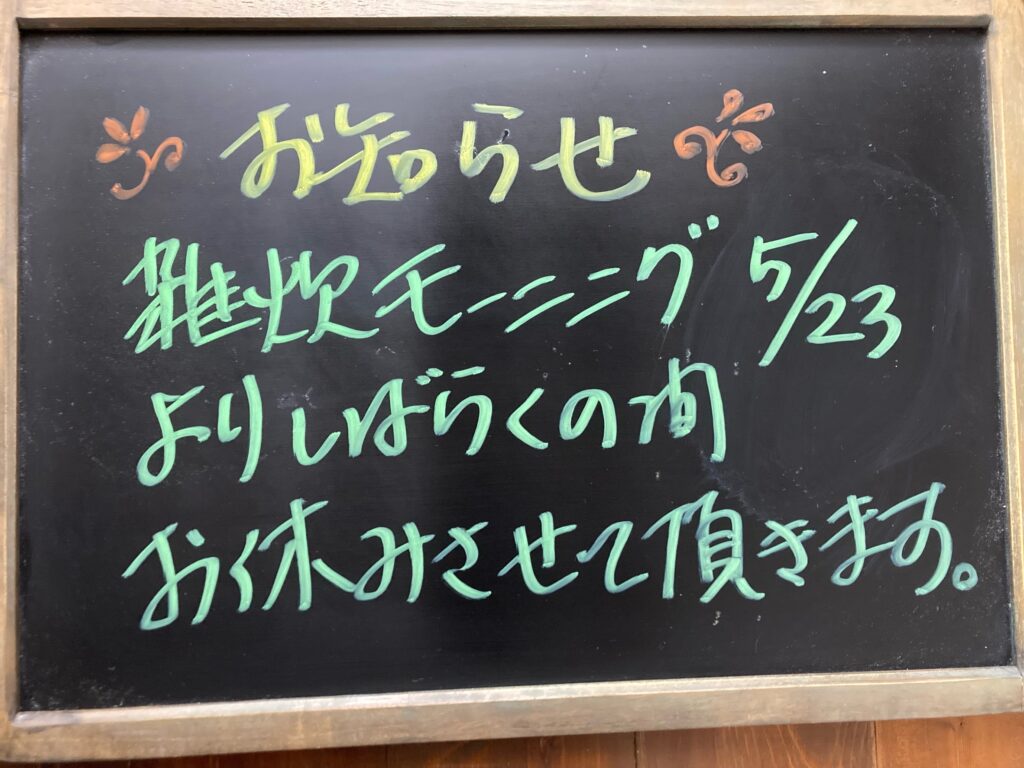 お知らせ
雑炊モーニング 5/23
よりしばらくの間
お休みさせて頂きます。